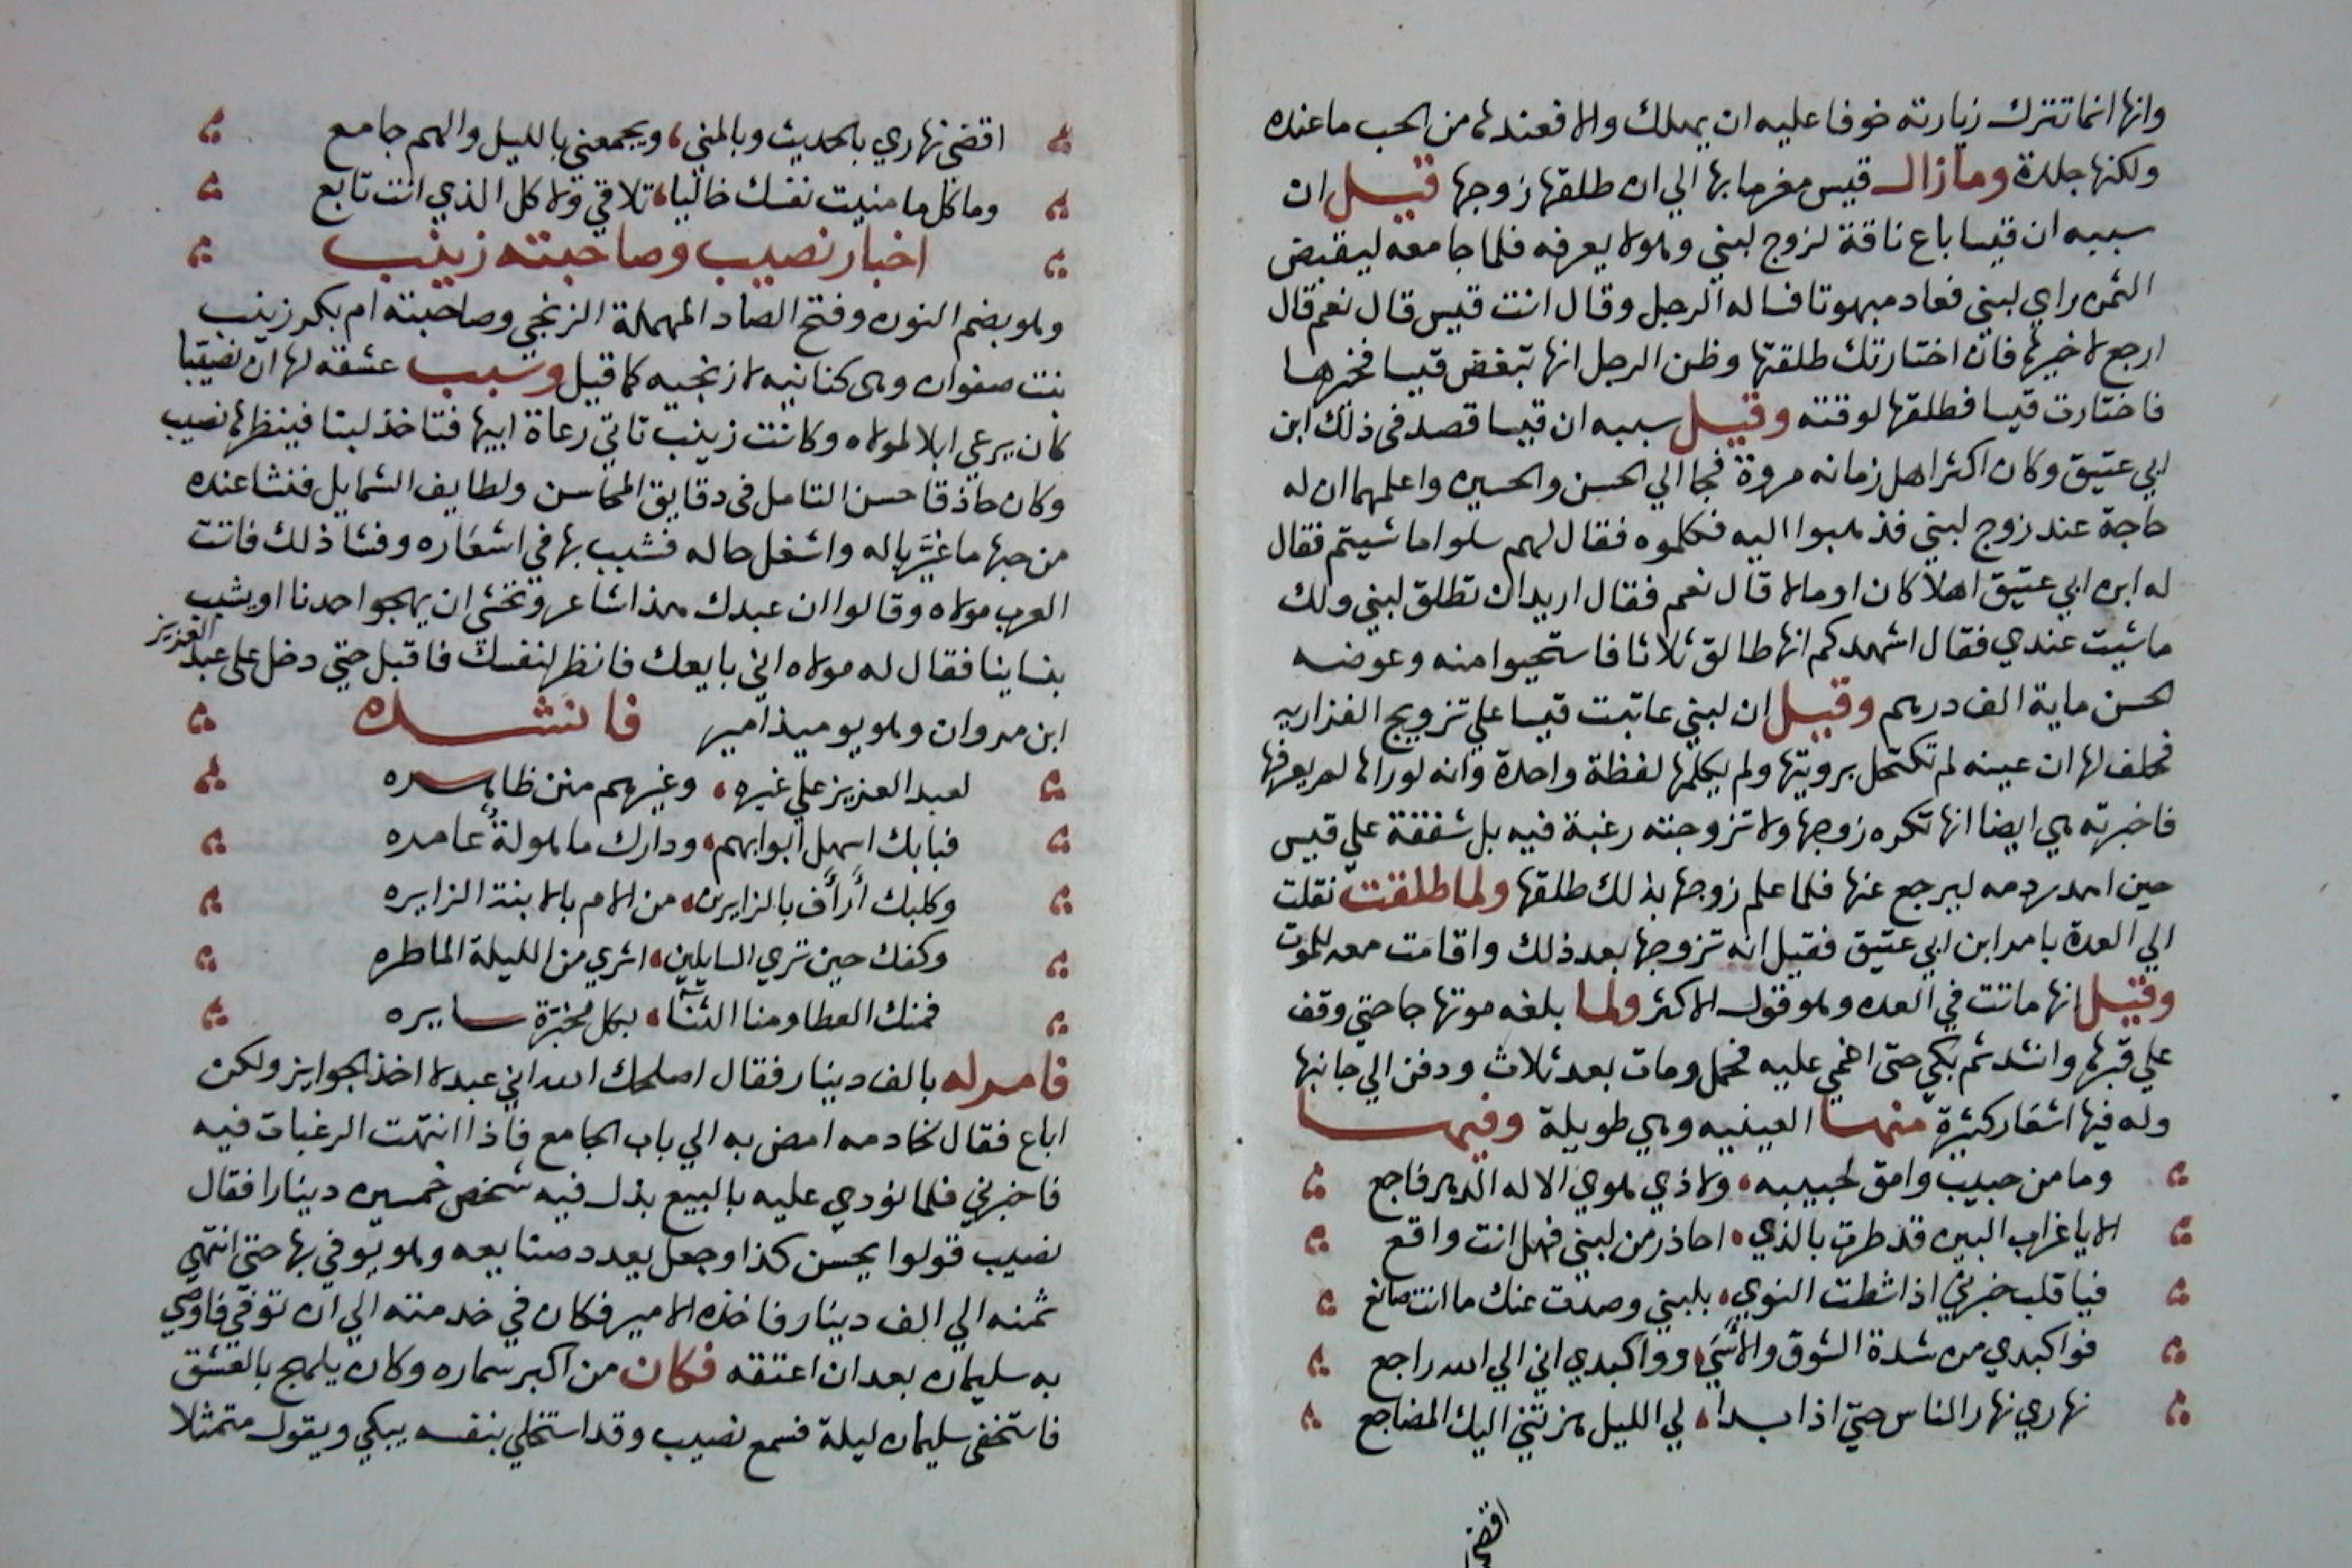 وانها انما تترك زيارته خوفا عليه ان يهلك والا فعندها من الحب ما عنده
ولكنها جلدة ومازال قيس مغرما بها الي ان طلقها زوجها قيل ان
سببه ان قيسا باع ناقة لزوج لبني وهو لا يعرفه فلما جا معه ليقبض
الثمن راي لبني فعاد مبهوتا فساله الرجل وقال انت قيس قال نعم قال
ارجع لاخيرها فان اختارتك طلقتها وظن الرجل انها تبغض قيسا فخيرها
فاختارت قيسا فطلقها لوقته وقيل سببه ان قيسا قصد في ذلك ابن
ابي عتيق وكان اكثر اهل زمانه مروة فجا الي الحسن والحسين واعلمهما ان له
حاجة عند زوج لبني فذهبوا اليه فكلموه فقال لهم سلوا ما شيتم فقال
له ابن ابي عتيق اهلا كان او مالا قال نعم فقال اريد ان تطلق لبني ولك
ما شيت عندي فقال اشهدكم انها طالق ثلاثا فاستحيوا منه وعوضه
الحسن ماية الف درهم وقيل ان لبني عاتبت قيسا علي تزويج الفزاريه
فحلف لها ان عينه لم تكتحل برويتها ولم يكلمها لفظة واحدة وانه لو راها لم يعرفها
فاخبرته هي ايضا انها تكره زوجها ولا تزوجته رغبة فيه بل شفقة علي قيس
حين اهدر دمه ليرجع عنها فلما علم زوجها بذلك طلقها ولما طلقت نقلت
الي العدة بامر ابن ابي عتيق فقيل انه تزوجها بعد ذلك واقامت معه للموت
وقيل انها ماتت في العده وهو قول الاكثر ولما بلغه موتها جا حتي وقف
علي قبرها وانشد ثم بكي حتي اغمي عليه فحمل ومات بعد ثلاث ودفن الي جانبها
وله فيها اشعار كثيرة منها العينيه وهي طويلة وفيها
وما من حبيب وامق لحبيبه ولا ذي هوي الا له الدهر فاجع
الا يا غراب البين قد طرت بالذي احاذر من لبني فهل انت واقع
فيا قلب خبرني اذا شطت النوي بلبني وصدت عنك ما انت صانع
فواكبدي من شدة الشوق والاسي وواكبدي اني الي الله راجع
نهاري نهار الناس حتي اذا بدا لي الليل هزتني اليك المضاجع
اقضي
اقضي نهاري بالحديث وبالمني ويجمعني بالليل والهم جامع
وما كل ما منيت نفسك خاليا تلاقي ولا كل الذي انت تابع
اخبار نصيب وصاحبته زينب
وهو بضم النون وفتح الصاد المهملة الزنجي وصاحبته ام بكر زينب
بنت صفوان وهي كنانيه لا زنجيه كما قيل وسبب عشقه لها ان نصيبا
كان يرعي ابلا لمولاه وكانت زينب تاتي رعاة ابيها فتاخذ لبنا فينظرها نصيب
وكان حاذقا حسن التامل في دقايق المحاسن ولطايف الشمايل فنشا عنده
من حبها ما غيّر باله واشغل حاله فشبب بها في اشعاره وفشا ذلك فاتت
العرب مولاه وقالوا ان عبدك هذا شاعر ونخشي ان يهجو احدنا او يشبب
بنساينا فقال له مولاه اني بايعك فانظر لنفسك فاقبل حتي دخل علي عبد العزيز
ابن مروان وهو يوميذ امير فانشده
لعبد العزيز علي غيره وغيرهم منن ظاهره
فبابك اسهل ابوابهم ودارك ماهولة عامره
وكلبك أرأف بالزايرين من الام بالابنة الزايره
وكفك حين تري السايلين اثري من الليلة الماطره
فمنك العطا ومنا الثنا بكل محبّرة سايره
فامر له بالف دينار فقال اصلحك الله اني عبد لا اخذ الجوايز ولكن
اباع فقال لخادمه امض به الي باب الجامع فاذا انتهت الرغبات فيه
فاخبرني فلما نودي عليه بالبيع بذل فيه شخص خمسين دينارا فقال
نصيب قولوا يحسن كذا وجعل يعدد صنايعه وهو يوفي بها حتي انتهي
ثمنه الي الف دينار فاخذه الامير فكان في خدمته الي ان توفي فاوصي
به سليمان بعد ان اعتقه فكان من اكبر سماره وكان يلهج بالعشق
فاستخفي سليمان ليلة فسمع نصيب وقد استخلي بنفسه يبكي ويقول متمثلا